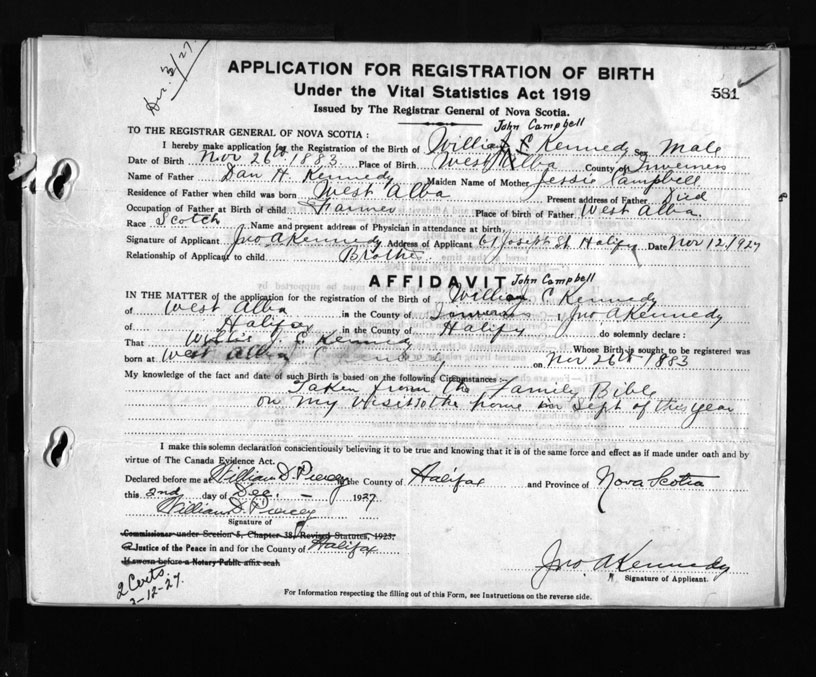 Dec. 3/27.
APPLICATION FOR REGISTRATION OF BIRTH
Under the Vital Statistics Act 1919
581
Issued by The Registrar General of Nova Scotia.
John Campbell
TO THE REGISTRAR GENERAL OF NOVA SCOTIA:
I hereby make application for the Registration of the Birth of William Kennedy Sex Male
Date of Birth Nov 26th 1883. Place of Birth West Alba County of Inverness
Name of Father Dan H. Kennedy Maiden Name of Mother Jessie Campbell
Residence of Father when child was born West Alba Present address of Father Died
Occupation of Father at Birth of child Farmer Place of birth of Father West Alba.
Race Scotch Name and present address of Physician in attendance at birth
Signature of Applicant Jno A Kennedy Address of Applicant 61 Joseph St Halifx Date Nov 12/1927
Relationship of Applicant to child Brother
AFFIDAVIT John Campbell
IN THE MATTER of the application for the registration of the Birth of William C Kennedy
of West Alba in the County of Inverness I, Jno A Kennedy
of Halifax in the County of Halifx do solemnly declare:
That Willie J. C Kennedy Whose Birth is sought to be registered was
born at West Alba on Nov 26th 1883
My knowledge of the fact and date of such Birth is based on the following Circumstances:—
Taken from the Family Bible
on my visit to the home in Sept of this year
I make this solemn declaration conscientiously believing it to be true and knowing that it is of the same force and effect as if made under oath and by
virtue of The Canada Evidence Act.
Declared before me at William D. Piercey in the County of Halifax and Province of Nova Scotia
this 2nd day of Dec. — 1927
William D. Piercey
Signature of
Commissioner under Section 5, Chapter 38, Revised Statutes, 1923.
a Justice of the Peace in and for the County of Halifax
If sworn before a Notary Public affix seal.
Jno. A Kennedy
Signature of Applicant.
2 Certs
2-12-27.
For Information respecting the filling out of this Form, see Instructions on the reverse side.